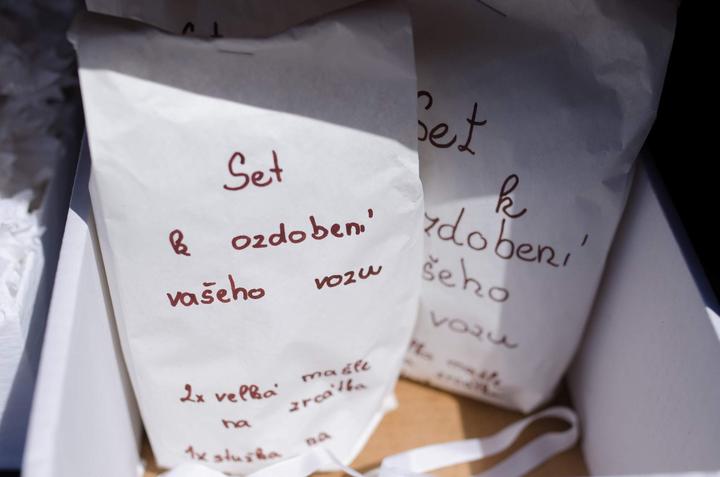 Set
k ozdobení
vašeho vozu
2x velká mašle
na zrcátka
1x stuška na
Set
k
zdobení
šeho
vozu